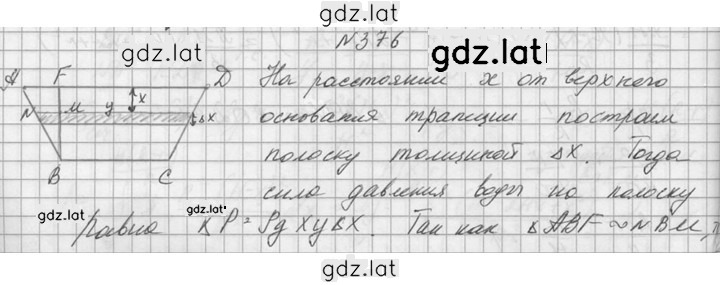 gdz.lat
N376
gdz.lat
gdz.lat
A F D
На расстоянии x от верхнего
x
N M y Δx
основания трапеции построим
полоску толщиной Δx. Тогда
B C
сила давления воды на полоску
gdz.lat
gdz.lat
равна ΔP = ρgxyΔx. Так как ΔABF ∾ NBM,
gdz.lat